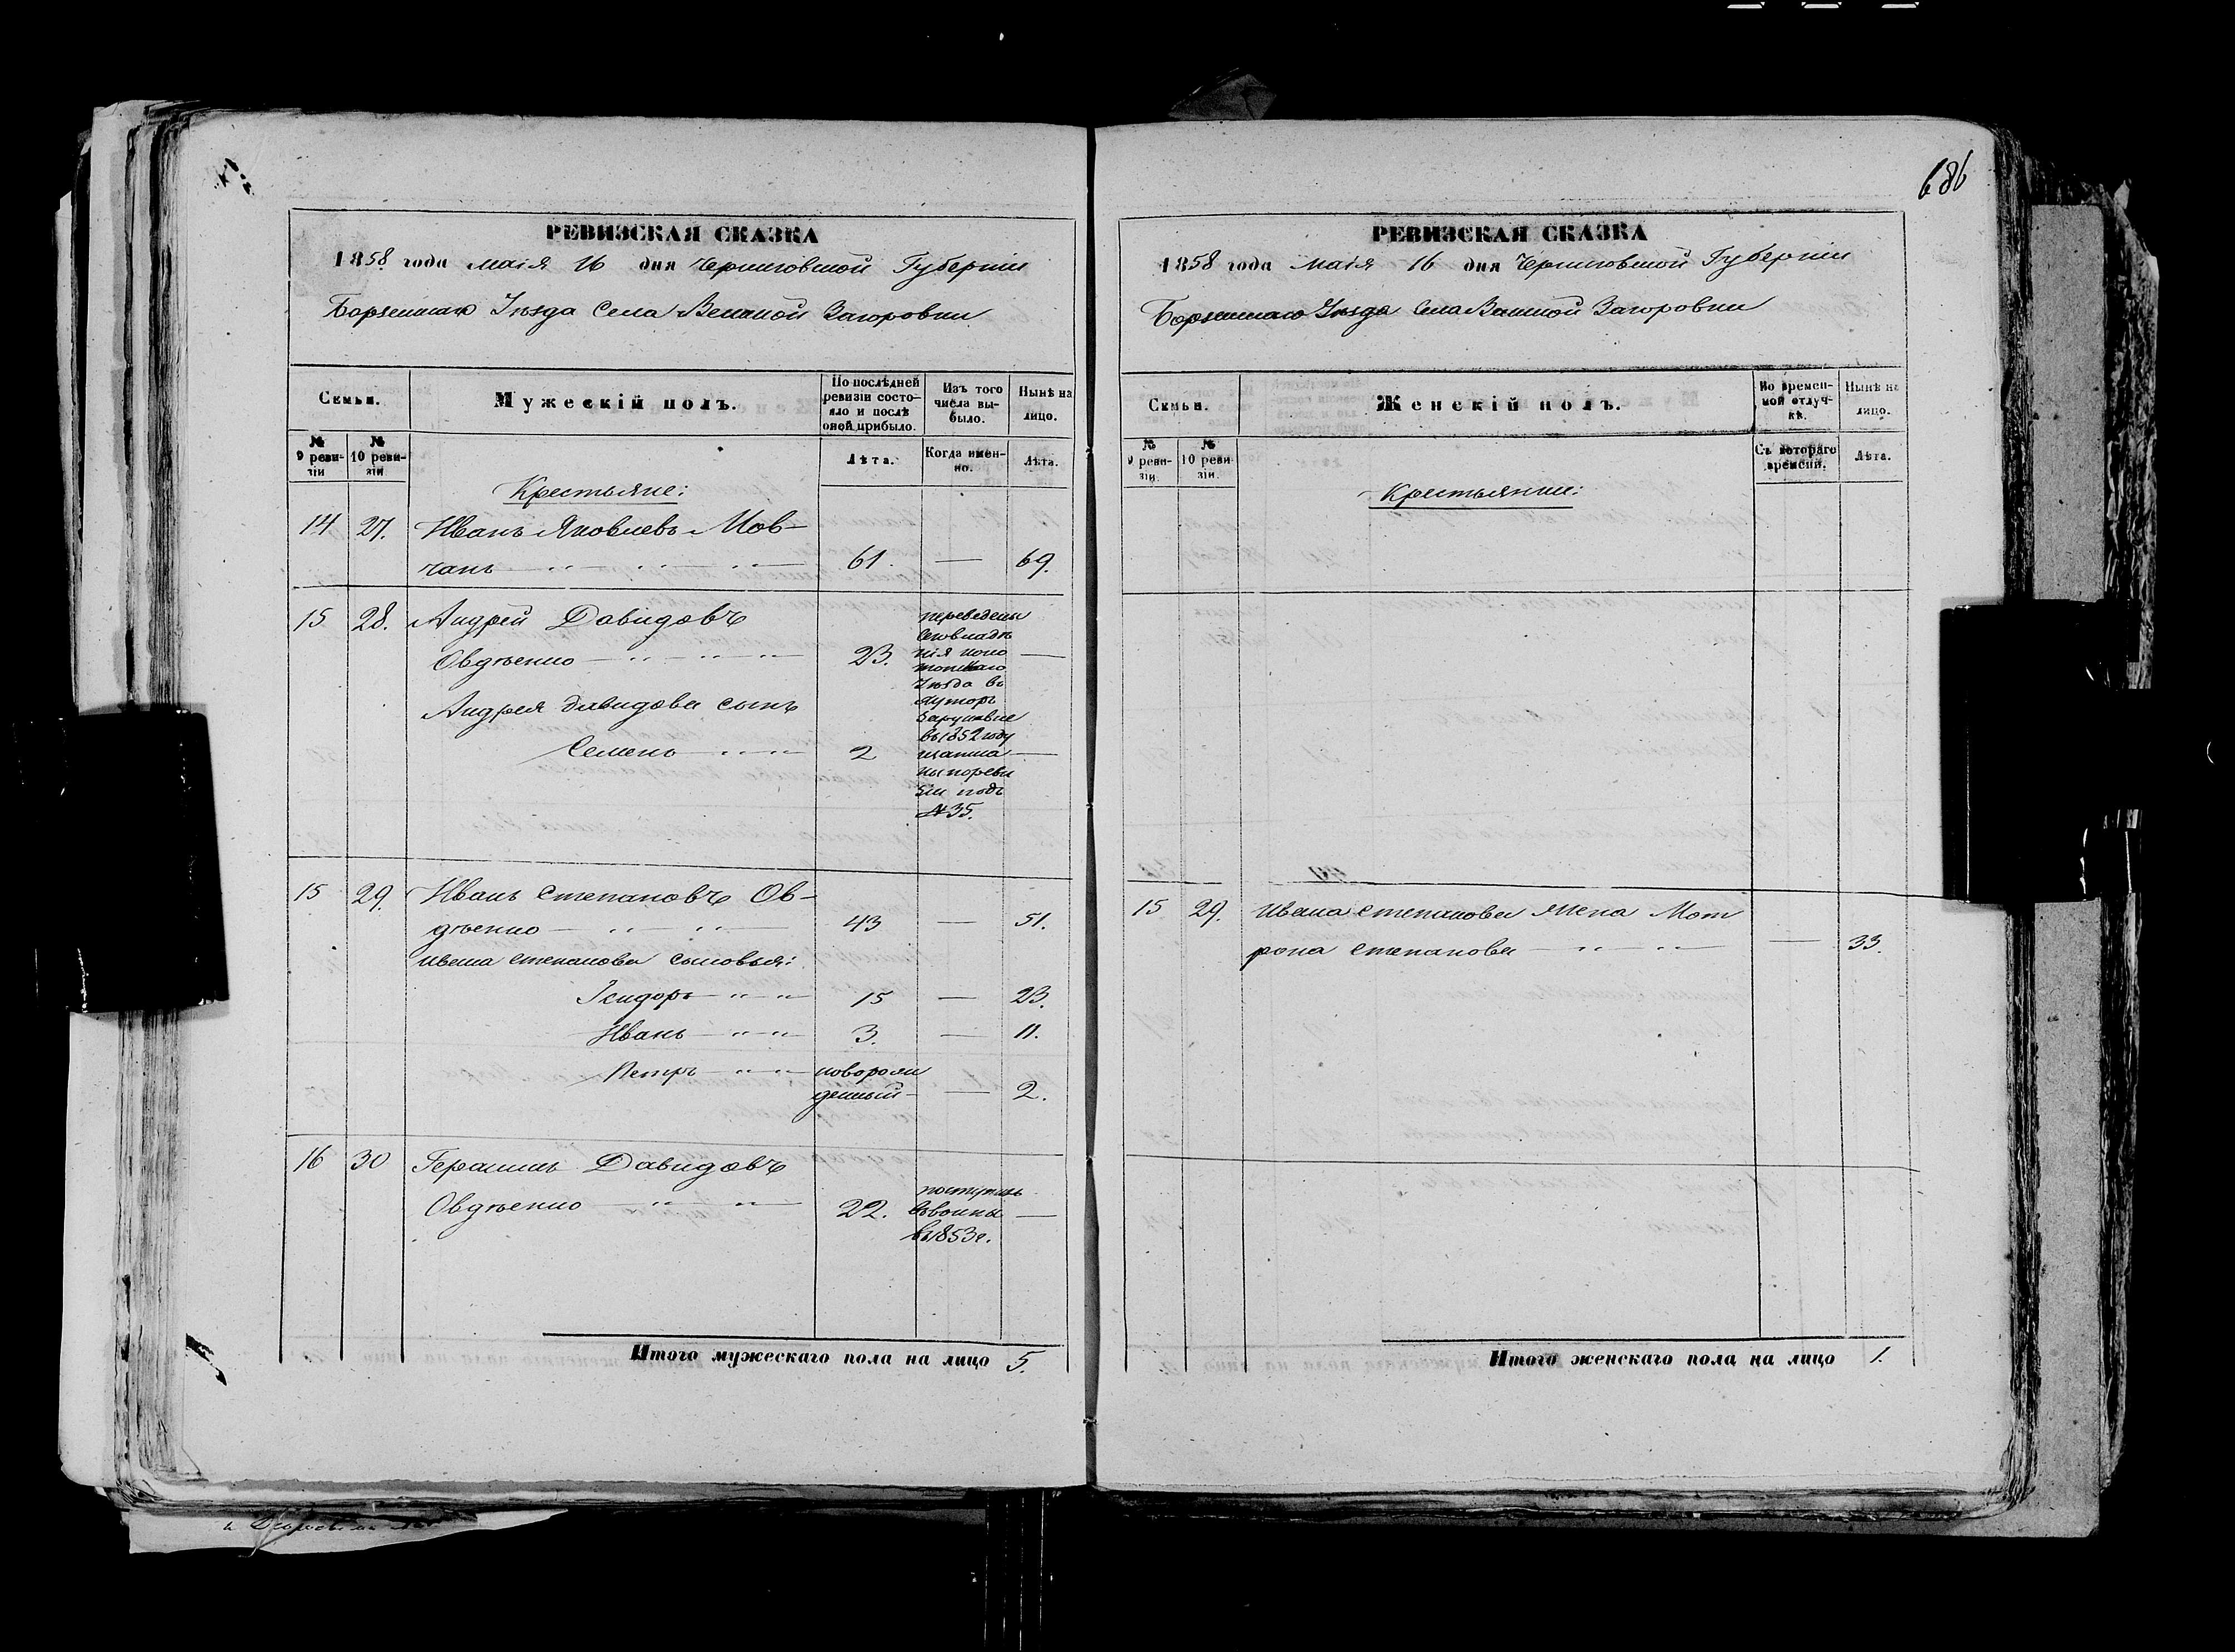 686
РЕВИЗСКАЯ СКАЗКА
1858 года маія 16 дня Черниговской Губерніи
Борзенскаго Уѣзда Села Великой Загоровки
Семьи.
Мужескій полъ.
По послѣдней
ревизіи состо-
яло и послѣ
оной прибыло.
Изъ того
числа вы-
было.
Нынѣ на
лицо.
№
9 реви-
зіи
№
10 реви-
зіи
Лѣта.
Когда имен-
но.
Лѣта.
Крестьяне:
14 27. Иванъ Яковлевъ Мов-
чанъ 61. — 69.
15 28. Андрей Давидовъ
Овдѣенко 23. —
Андрея Давидова сынъ
Семенъ 2 —
переведены
сеовладѣ
нія коно
топскаго
Уѣзда въ
хуторъ
въ 1852 году
ны по реви
зіи подъ
№ 35.
15 29. Иванъ Степановъ Ов-
дѣенко 43 — 51.
Ивана Степанова сыновья:
Ісидоръ 15 — 23.
Иванъ 3. — 11.
Петръ новорож
денный — 2.
16 30 Герасимъ Давидовъ
Овдѣенко 22. —
поступилъ
въ воины
въ 1853 г.
Итого мужескаго пола на лицо 5.
РЕВИЗСКАЯ СКАЗКА
1858 года маія 16 дня Черниговской Губерніи
Борзенскаго Уѣзда Села Великой Загоровки
Семьи.
Женскій полъ.
Во времен-
ной отлуч-
кѣ.
Нынѣ на
лицо.
№
9 реви-
зіи.
№
10 реви-
зіи.
Съ котораго
времени.
Лѣта.
Крестьянки:
15 29. Ивана Степанова жена Мот
рона Степанова — 33.
Итого женскаго пола на лицо 1.